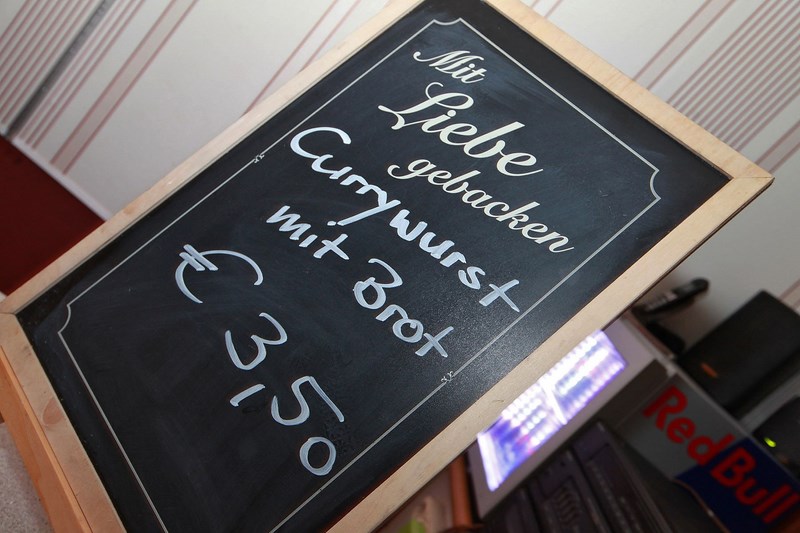 Mit
Liebe
gebacken
Currywurst
mit Brot
€ 3,50
RedBull